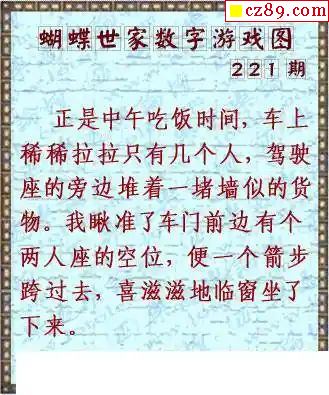 cz89.com
蝴蝶世家数字游戏图
221期
正是中午吃饭时间，车上
稀稀拉拉只有几个人，驾驶
座的旁边堆着一堵墙似的货
物。我瞅准了车门前边有个
两人座的空位，便一个箭步
跨过去，喜滋滋地临窗坐了
下来。